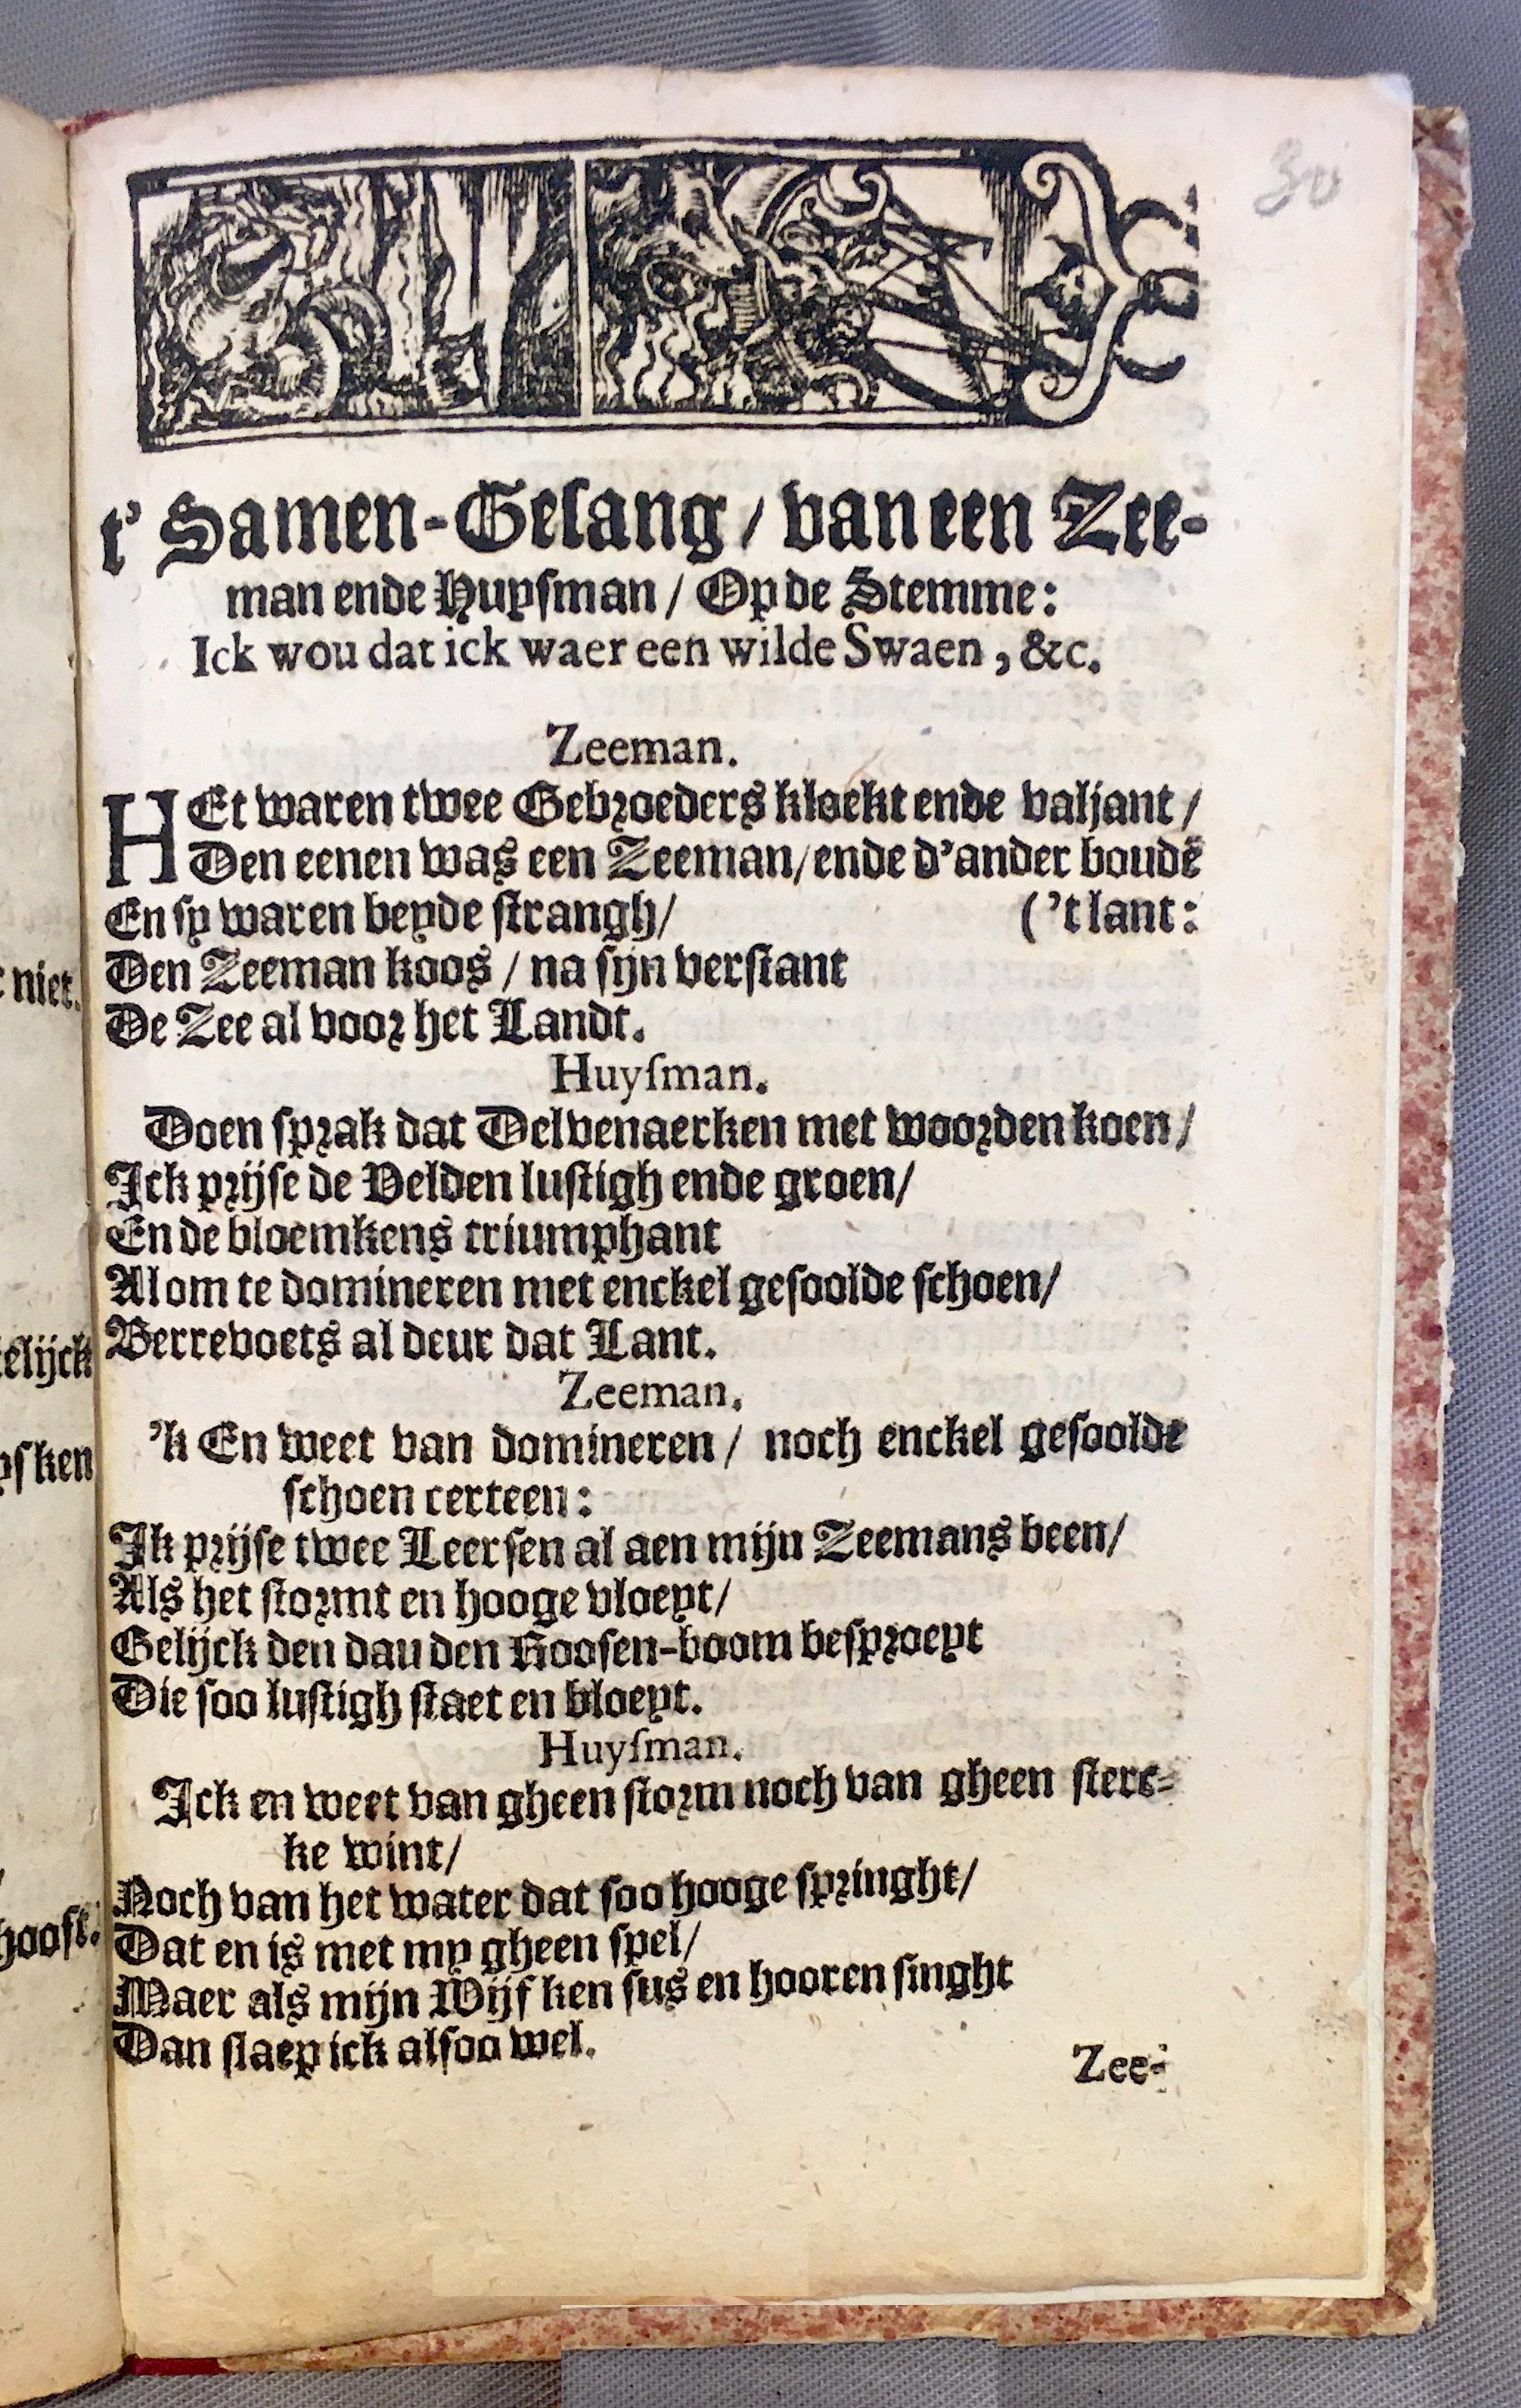 30
t' Samen-Gesang / van een Zee-
man ende Huysman / Op de Stemme:
Ick wou dat ick waer een wilde Swaen, &c.
Zeeman.
HEt waren twee Gebroeders kloekt ende valjant /
Den eenen was een Zeeman / ende d'ander boudē
En sy waren beyde strangh / ('t lant:
Den Zeeman koos / na sijn verstant
De Zee al voor het Landt.
Huysman.
Doen sprak dat Delvenaerken met woorden koen /
Ick prijse de Velden lustigh ende groen /
En de bloemkens triumphant
Alom te domineren met enckel gesoolde schoen /
Berrevoets al deur dat Lant.
Zeeman.
'k En weet van domineren / noch enckel gesoolde
schoen certeen:
Ik prijse twee Leersen al aen mijn Zeemans been /
Als het stormt en hooge vloeyt /
Gelijck den dau den Roosen-boom besproeyt
Die soo lustigh staet en bloeyt.
Huysman.
Ick en weet van gheen storm noch van gheen sterc-
ke wint /
Noch van het water dat soo hooge springht /
Dat en is met my gheen spel /
Maer als mijn Wijfken sus en hooren singht
Dan slaep ick alsoo wel.
Zee-
niet.
elijck
ysken
hooft.